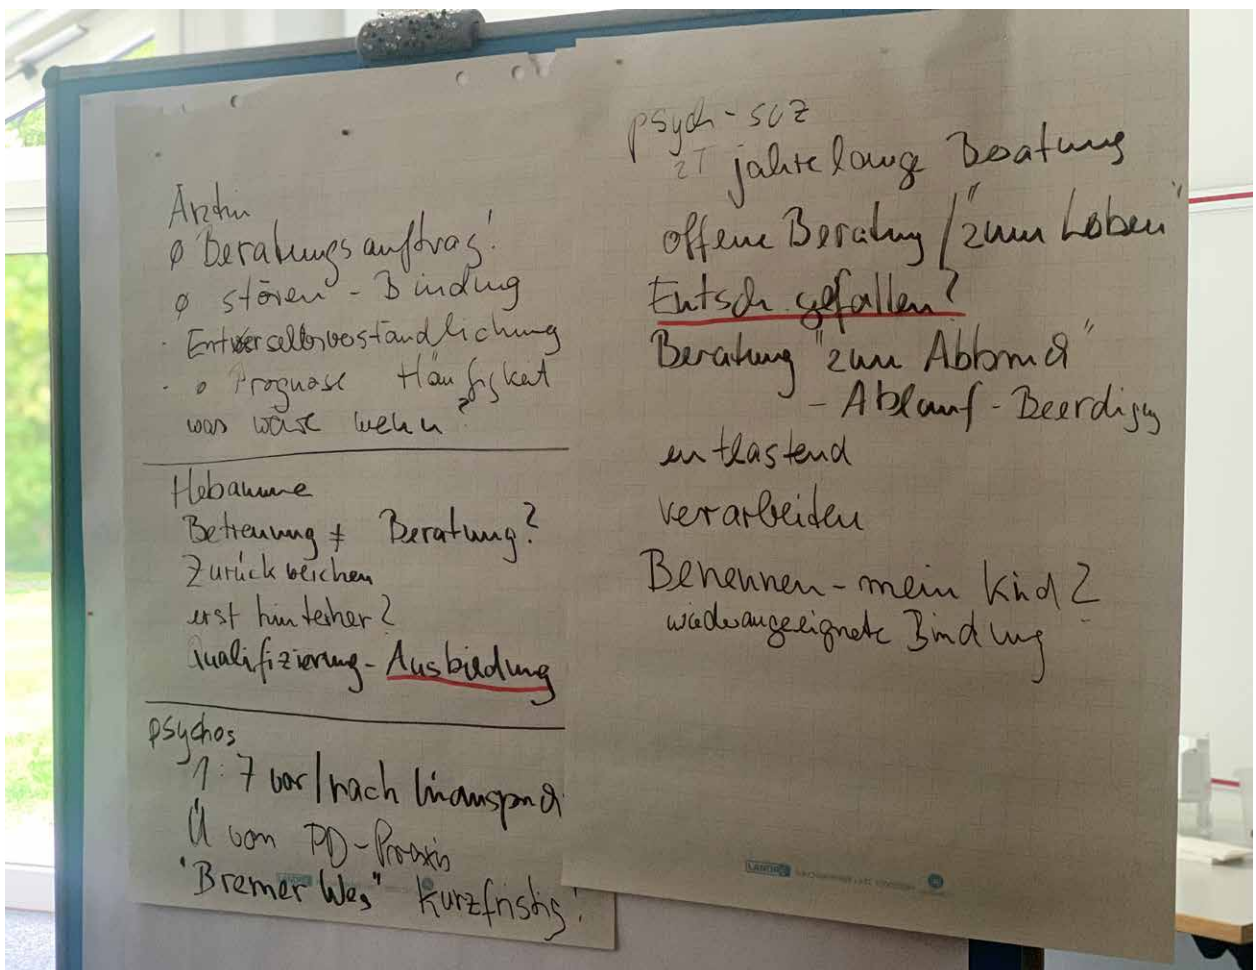 Ärztin
ø Beratungsauftrag!
ø stören - Bindung
· Entverselbstverständlichung
· o Prognose Häufigkeit
was wäre wenn?
Hebamme
Betreuung ≠ Beratung?
Zurückweichen
erst hinterher?
Qualifizierung - Ausbildung
psychos
1:7 vor/nach
Ü von PD-Praxis
"Bremer Weg" kurzfristig!
psych-soz
zT jahrelange Beratung
offene Beratung / "zum Leben"
Entsch. gefallen?
Beratung "zum Abbruch"
- Ablauf - Beerdigg
entlastend
verarbeiten
Benennen - mein Kind?
wiederangeeignete Bindung